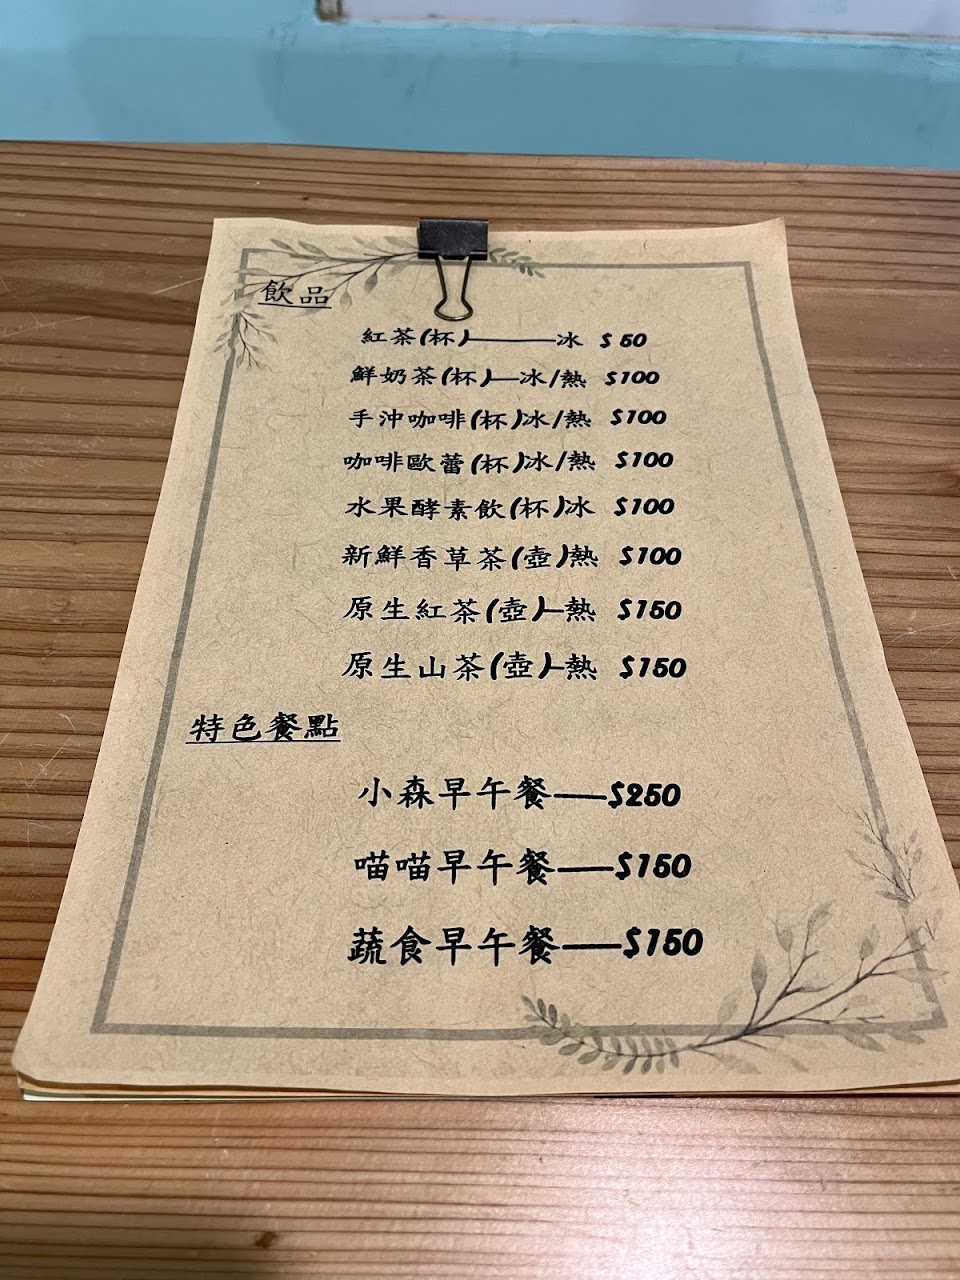 飲品
紅茶(杯)———冰 $ 50
鮮奶茶(杯)—冰/熱 $100
手沖咖啡(杯)冰/熱 $100
咖啡歐蕾(杯)冰/熱 $100
水果酵素飲(杯)冰 $100
新鮮香草茶(壺)熱 $100
原生紅茶(壺)—熱 $150
原生山茶(壺)—熱 $150
特色餐點
小森早午餐——$250
喵喵早午餐——$150
蔬食早午餐——$150